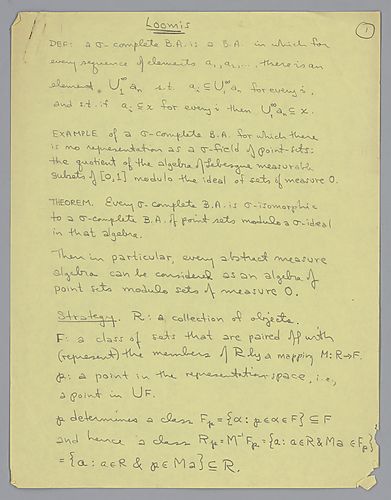 Loomis
1
DEF: a σ-complete B.A. is a B.A. in which for
every sequence of elements a₁, a₂, ..., there is an
element ⋃₁^∞ aₙ s.t. aᵢ ⊆ ⋃₁^∞ aₙ for every i,
and s.t. if aᵢ ⊆ x for every i then ⋃₁^∞ aₙ ⊆ x.
EXAMPLE of a σ-complete B.A. for which there
is no representation as a σ-field of point-sets:
the quotient of the algebra of Lebesgue measurable
subsets of [0,1] modulo the ideal of sets of measure 0.
THEOREM. Every σ-complete B.A. is σ-isomorphic
to a σ-complete B.A. of point sets modulo a σ-ideal
in that algebra.
Then in particular, every abstract measure
algebra can be considered as an algebra of
point sets modulo sets of measure 0.
Strategy. R: a collection of objects.
F: a class of sets that are paired off with
(represent) the members of R by a mapping M: R→F.
p: a point in the representation space, i.e.,
a point in UF.
p determines a class Fₚ = {α: p∈α∈F} ⊆ F
and hence a class Rₚ = M⁻¹Fₚ = {a: a∈R & Ma∈Fₚ}
= {a: a∈R & p∈Ma} ⊆ R.